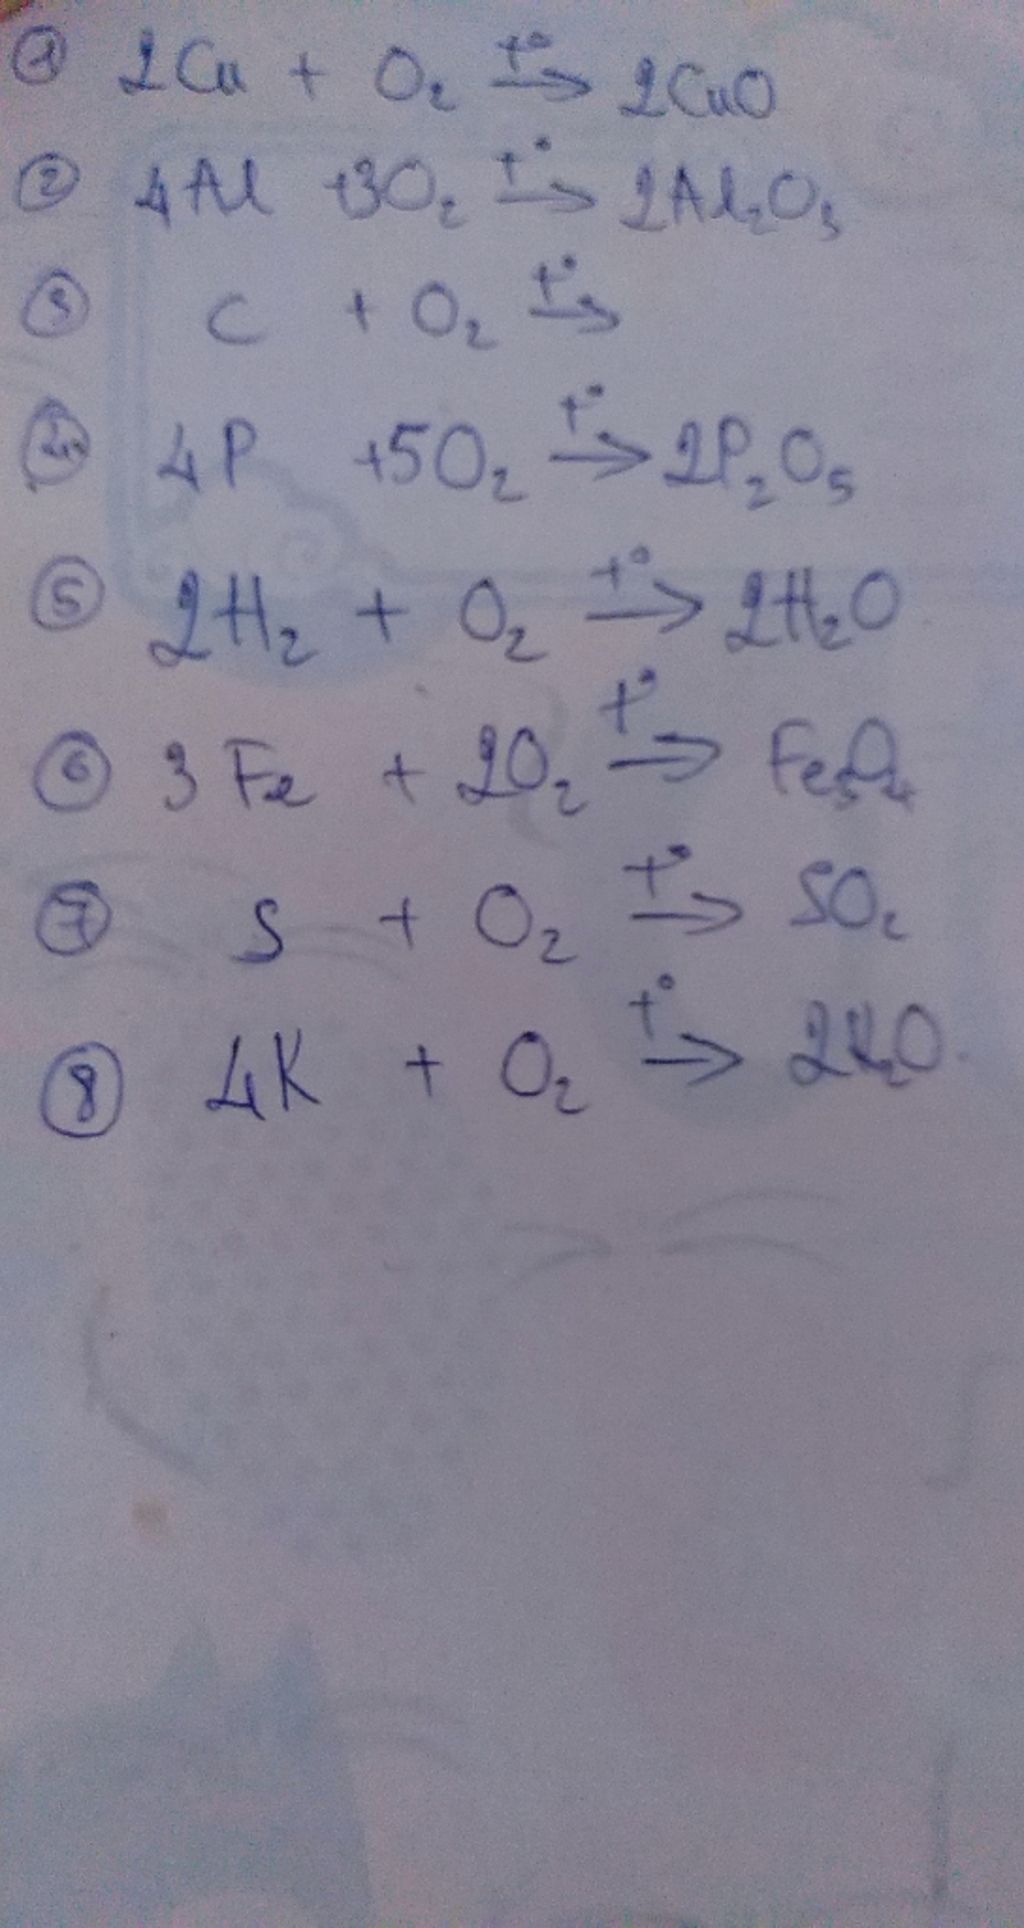 ① 2Cu + O₂ t°→ 2CuO
② 4Al +3O₂ t°→ 2Al₂O₃
③ C + O₂ t°→
④ 4P +5O₂ t°→ 2P₂O₅
⑤ 2H₂ + O₂ t°→ 2H₂O
⑥ 3Fe + 2O₂ t°→ Fe₃O₄
⑦ S + O₂ t°→ SO₂
⑧ 4K + O₂ t°→ 2K₂O